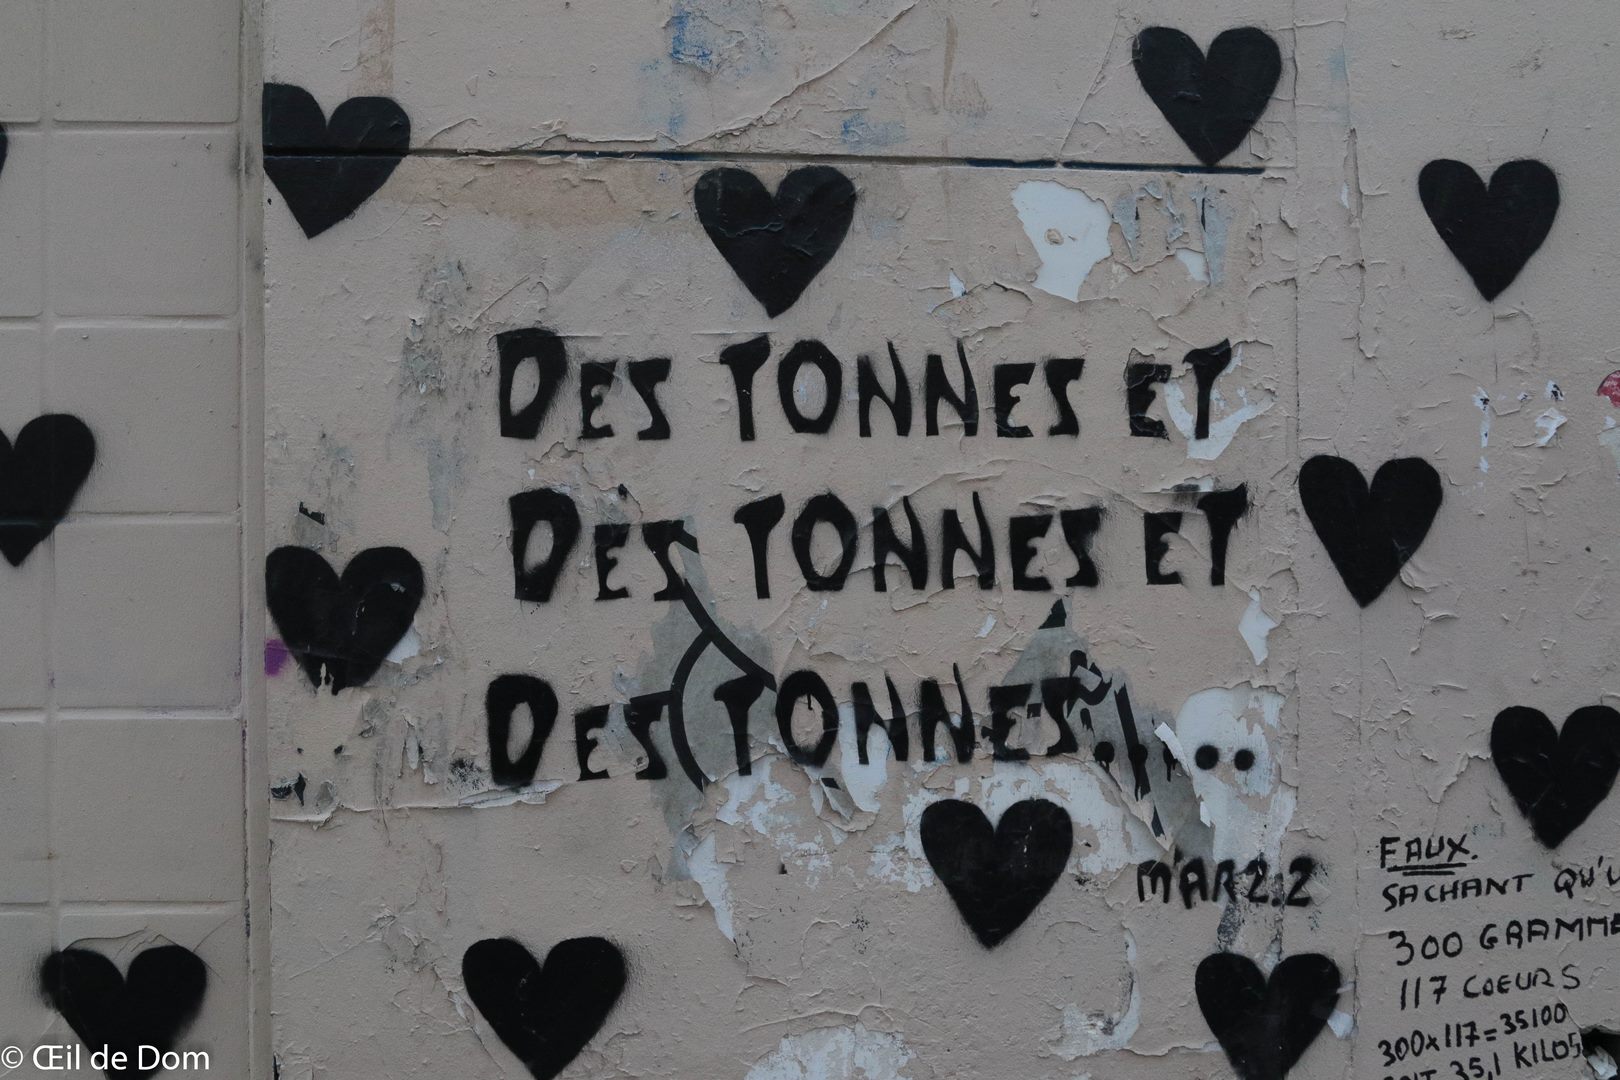 Des tonnes et
Des tonnes et
Des tonnes...
M'AR2.2
FAUX.
SACHANT QU'U
300 GRAMME
117 COEURS
300x117=35100
SOIT 35,1 KILOS
© Œil de Dom